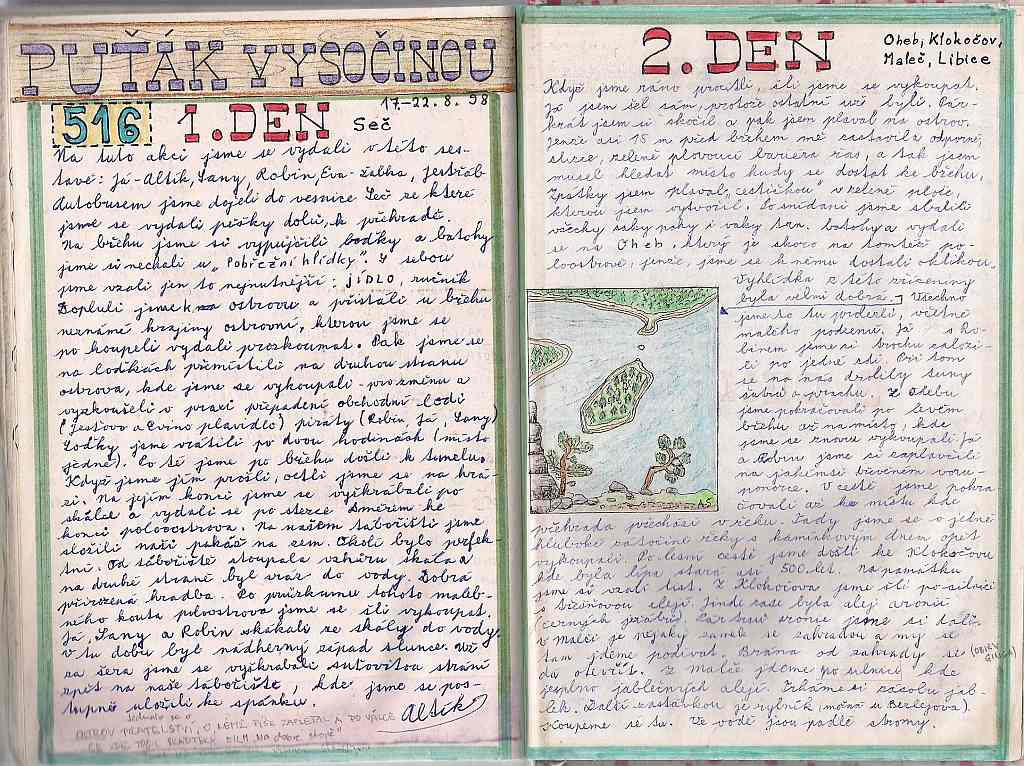 PUŤÁK VYSOČINOU
17.-22.8.98
516 1. DEN Seč
Na tuto akci jsme se vydali v této ses-
tavě: Já-Altík, Lany, Robin, Eva-Žabka, Jestřáb
Autobusem jsme dojeli do vesnice Seč ze které
jsme se vydali pěšky dolů, k přehradě.
Na břehu jsme si vypůjčili loďky a batohy
jsme si nechali u „Pobřežní hlídky". S sebou
jsme vzali jen to nejnutnější: JÍDLO, ručník
Dopluli jsme k ostrovu a přistáli u břehu
neznámé krajiny ostrovní, kterou jsme se
po koupeli vydali prozkoumat. Pak jsme se
na loďkách přemístili na druhou stranu
ostrova, kde jsme se vykoupali - pro změnu a
vyzkoušeli v praxi přepadení obchodní lodi
(Jestovo a Evino plavidlo) piráty (Robin, Já, Lany)
Loďky jsme vrátili po dvou hodinách (místo
jedné). Po té jsme po břehu došli k tunelu.
Když jsme jím prošli, octli jsme se na hrá-
zi. Na jejím konci jsme se vyškrábali po
skálce a vydali se po stezce směrem ke
konci poloostrova. Na našem tábořišti jsme
složili naši pakáž na zem. Okolí bylo perfek-
tní. Od tábořiště stoupala vzhůru skála a
na druhé straně byl sráz do vody. Dobrá
přirozená hradba. Po průzkumu tohoto maleb-
ného kouta poloostrova jsme se šli vykoupat.
Já, Lany a Robin skákali ze skály do vody,
v tu dobu byl nádherný západ slunce. Už
za šera jsme se vyškrábali suťovitou strání
zpět na naše tábořiště, kde jsme se pos-
tupně uložili ke spánku. Altík
Jednalo se o
OSTROV PŘÁTELSTVÍ, O NĚMŽ PÍŠE ZAPLETAL
2. DEN
Oheb, Klokočov,
Maleč, Libice
Když jsme ráno procitli, šli jsme se vykoupat.
Já jsem šel sám, protože ostatní už byli. Pár-
krát jsem si skočil a pak jsem plaval na ostrov.
Jenže asi 15 m před břehem mě zastavila odporně,
slizce, zeleně plovoucí bariéra řas, a tak jsem
musel hledat místo kudy se dostat ke břehu.
Zpátky jsem plaval „cestičkou" v zelené ploše,
kterou jsem vytvořil. Po snídani jsme sbalili
všechy saky paky i vaky tzn. batohy a vydali
se na Oheb, který je skoro na tomtéž po-
loostrově, jenže, jsme se k němu dostali oklikou.
Vyhlídka z této zříceniny
byla velmi dobrá. Všechno
jsme to tu prolezli, včetně
malého podzemí. Já s Ro-
binem jsme si trochu zalozi-
li po jedné zdi. Při tom
se na nás drolily tuny
šutrů a prachu. Z Ohebu
jsme pokračovali po levém
břehu až na místo, kde
jsme se znovu vykoupali. Já
a Robin jsme si zaplavali
na jakémsi dřevěném voru-
ponorce. V cestě jsme pokra-
čovali až ke místu kde
AŠ
přehrada přechází v řeku. Tady jsme se v jedné
hluboké zátočině řeky s kamínkovým dnem opět
vykoupali. Po lesní cestě jsme došli ke Klokočovu
kde byla lípa stará asi 500 let. Na památku
jsme si vzali list. Z Klokočova jsme šli po silnici
s břízovou alejí. Jinde zase byla alej aronií
(černých jeřábů).
V Malči je nějaký zámek se zahradou a my se
tam jdeme podívat. Brána od zahrady se
dá otevřít. Z Malče jdeme po silnici kde
je plno jablečných alejí. Trháme si zásobu jab-
lek. Další zastávkou je rybník (možná u Bezděkova).
Koupeme se tu. Ve vodě jsou padlé stromy.